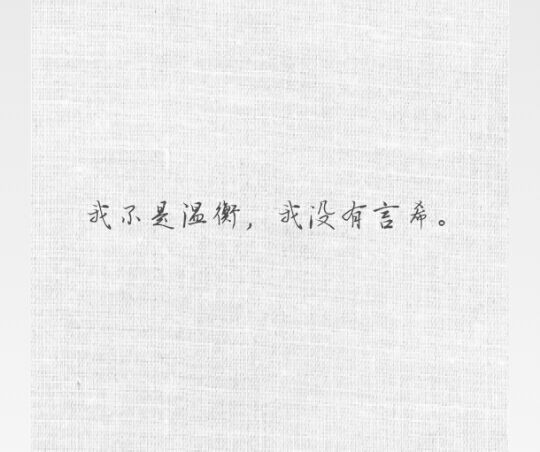 我不是温衡，我没有言希。